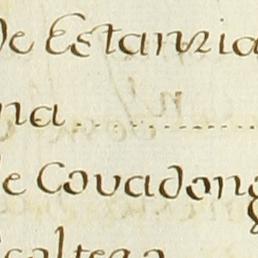 De Estanzia
na
de Covadong
scaltega